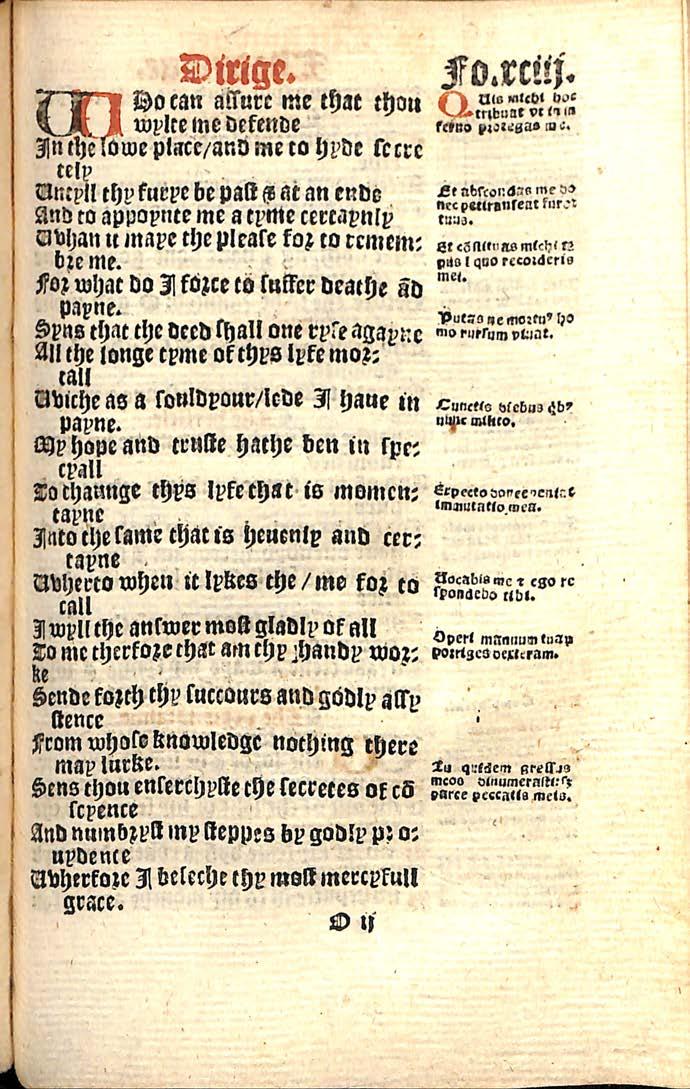 Dirige.
Fo.xciiij.
WHo can assure me that thou
wylte me defende
In the lowe place/and me to hyde secre
tely
Untyll thy furye be past & at an ende
And to appoynte me a tyme certaynly
Uvhan it maye the please for to remem:
bre me.
For what do I force to suffer deathe ād
payne.
Syns that the deed shall one ryse agayne
All the longe tyme of thys lyfe mor:
tall
Uviche as a souldyour/lede I haue in
payne.
My hope and truste hathe ben in spe:
cyall
To chaunge thys lyfe that is momen:
tayne
Into the same that is heuenly and cer:
tayne
Uvherto when it lykes the / me for to
call
I wyll the answer most gladly of all
To me therfore that am thy handy wor:
ke
Sende forth thy succours and godly assy
stence
From whose knowledge nothing there
may lurke.
Sens thou enserchyste the secretes of cō
scyence
And numbryst my steppes by godly pro:
uydence
Uvherfore I beseche thy most mercyfull
grace.
D ij
QUis michi hoc
tribuat vt in in
ferno protegas me.
Et abscondas me do
nec pertranseat furor
tuus.
Et cōstituas michi tē
pus ī quo recorderis
mei.
Putas ne mortu⁹ ho
mo rursum viuat.
Cunctis diebus q̇b⁹
nunc milito.
Expecto donec veniat
immutatio mea.
Uocabis me ⁊ ego re
spondebo tibi.
Operi manuum tuarū
porriges dexteram.
Tu quidem gressus
meos dinumerasti: sꝫ
parce peccatis meis.